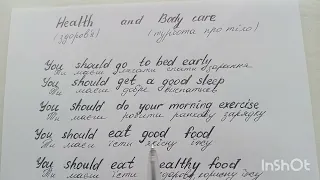 Health and Body care
(здоров'я) (турбота про тіло)
You should go to bed early
Ти маєш лягати спати зарання
You should get a good sleep
Ти маєш добре виспатись
You should do your morning exercise
Ти маєш робити ранкову зарядку
You should eat good food
Ти маєш їсти якісну їжу
You should eat healthy food
Ти маєш їсти здорову їжу
InShOt